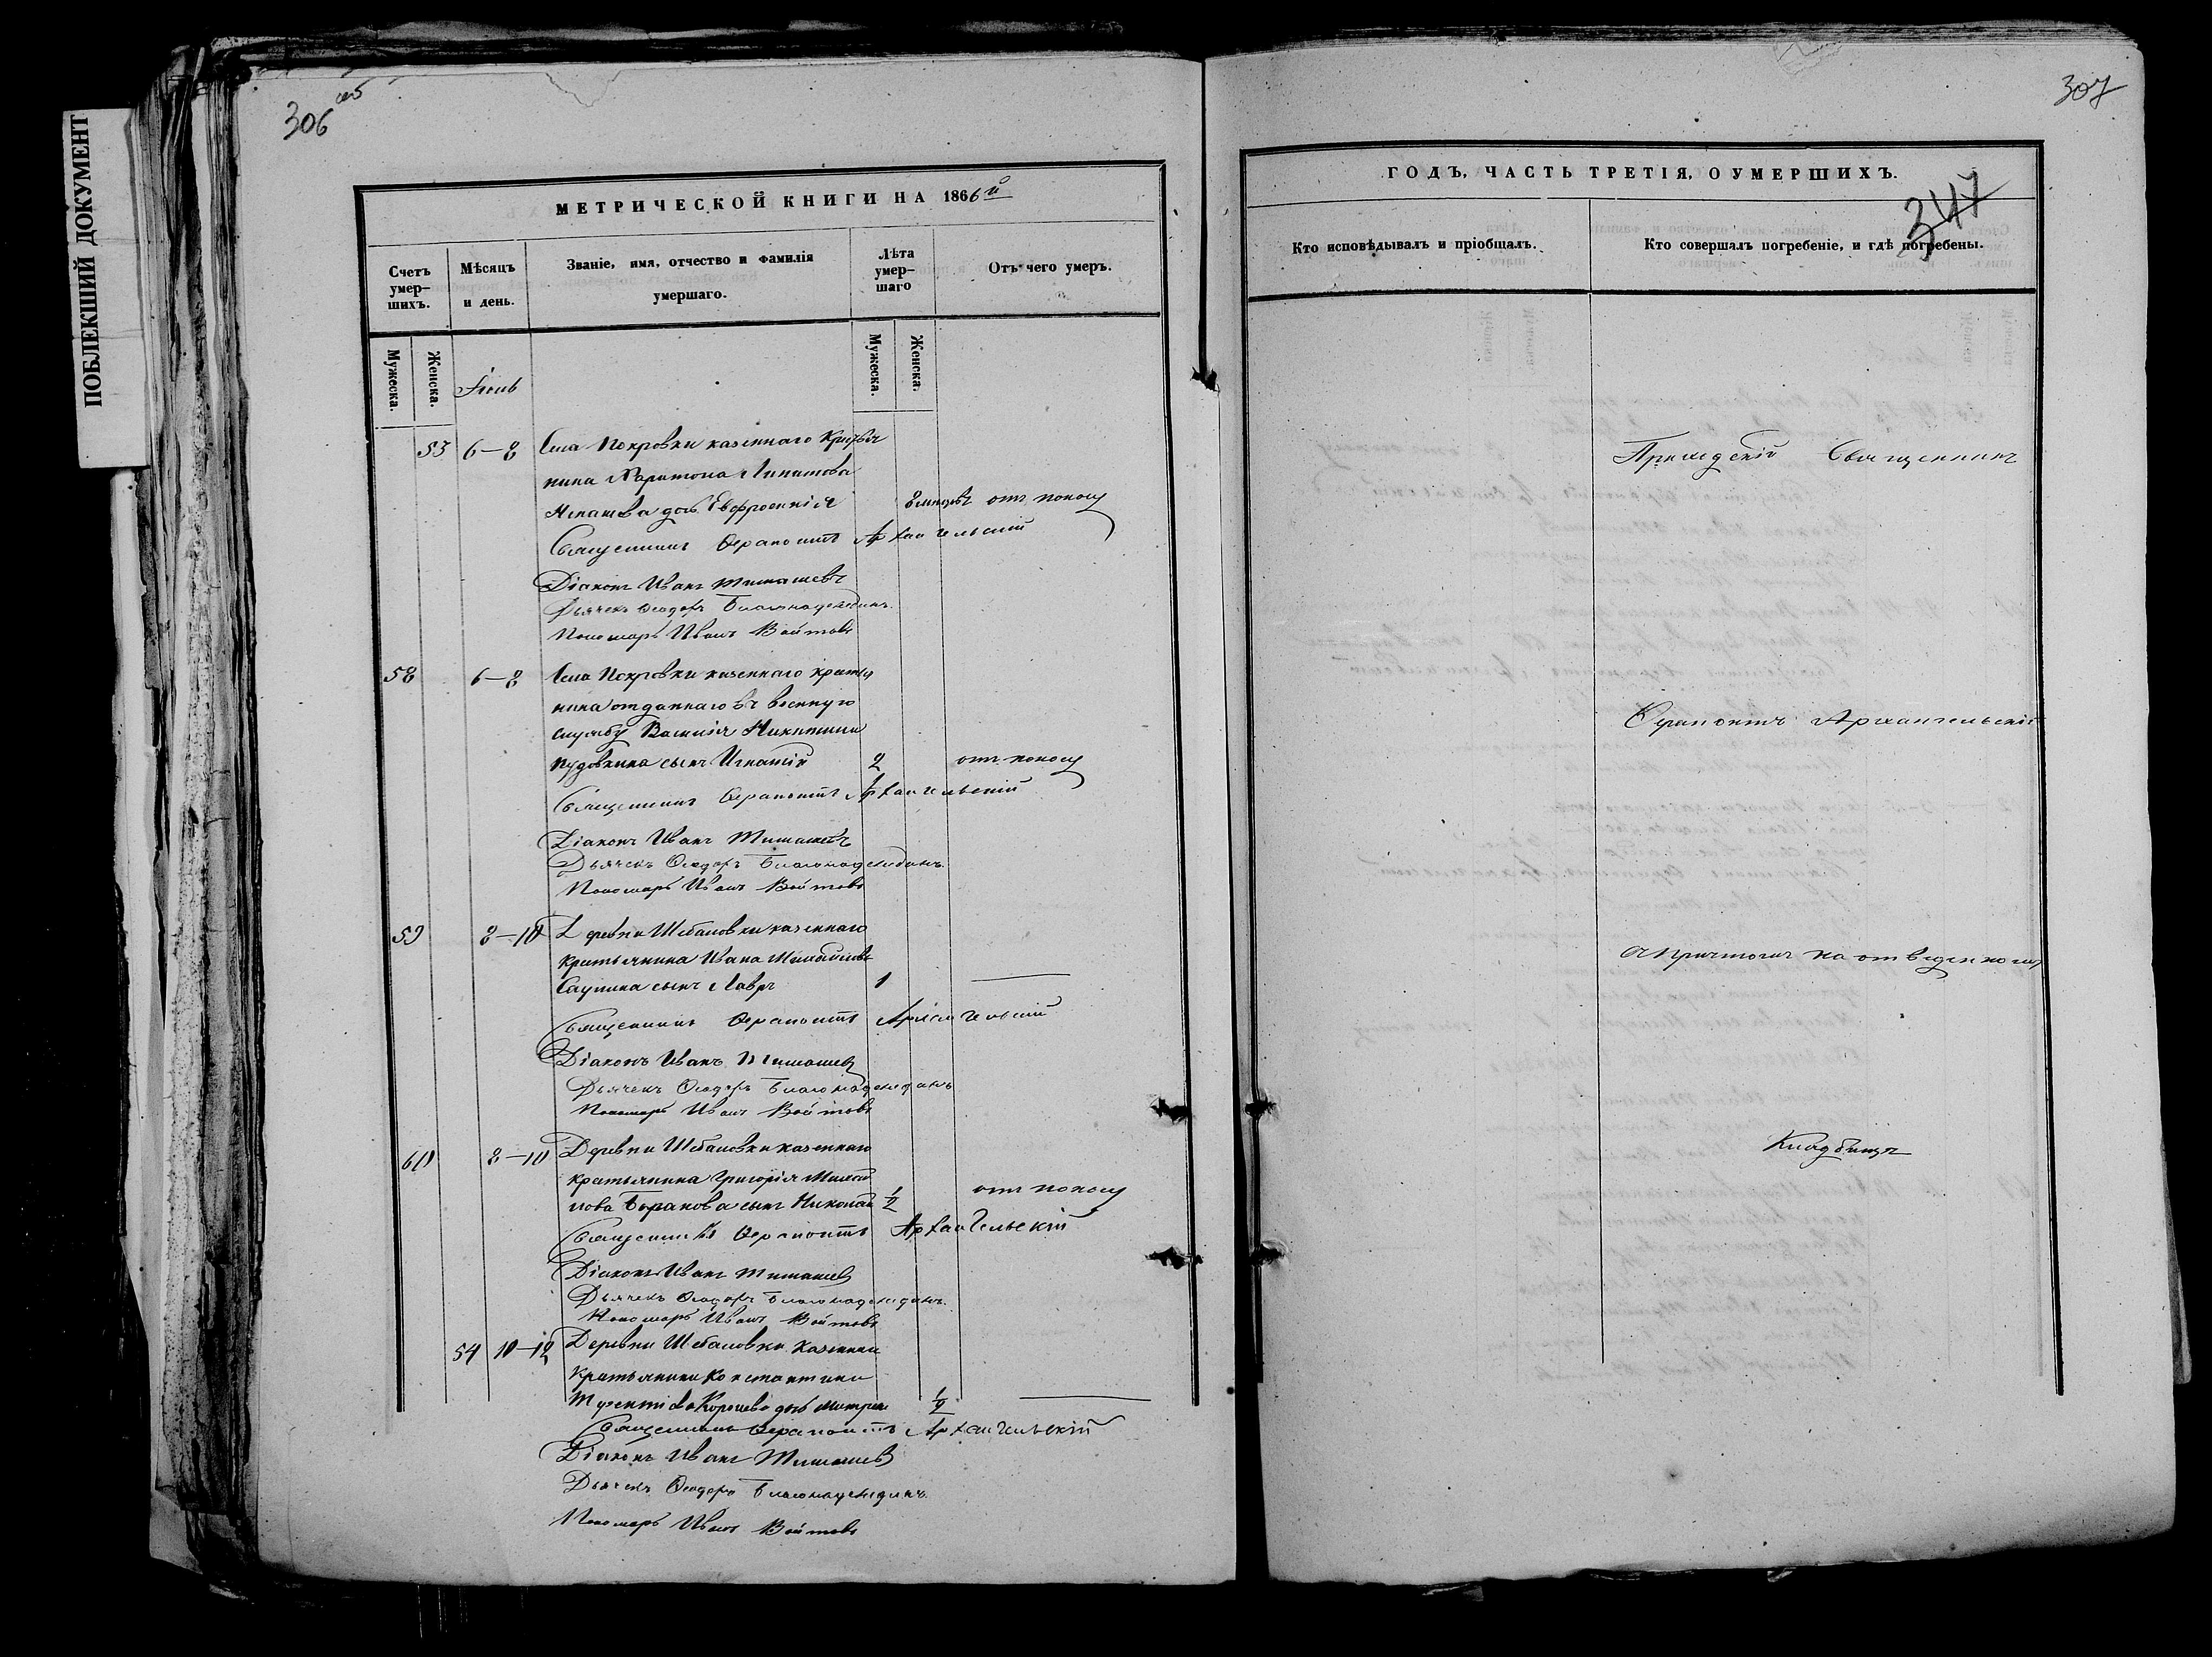 ПОБЛЕКШИЙ ДОКУМЕНТ
306 об
МЕТРИЧЕСКОЙ КНИГИ НА 1866й
Счетъ умер-шихъ.
Мѣсяцъ и день.
Званіе, имя, отчество и фамилія умершаго.
Лѣта умер-шаго
Отъ чего умеръ.
Мужеска.
Женска.
Мужеска.
Женска.
Іюнь
53 6-8 Села Покровки казеннаго Крестья
нина Харитона
дочь Евфросинія 8 отъ поносу
Священникъ Ѳерапонтъ Архангельскій
Діаконъ Иванъ Тимашевъ
Дьячекъ Ѳеодоръ Благонадеждинъ.
Пономарь Иванъ Войтовъ
58 6-8 Села Покровки казеннаго крестья
нина отданнаго въ военную
службу Василія Никитина
Пудовкина сынъ Игнатій 2 отъ поносу
Священникъ Ѳерапонтъ Архангельскій
Діаконъ Иванъ Тимашевъ
Дьячекъ Ѳеодоръ Благонадеждинъ.
Пономарь Иванъ Войтовъ
59 8-10 Деревни Шебаловки казеннаго
крестьянина Ивана
сынъ Лавръ 1
Священникъ Ѳерапонтъ Архангельскій
Діаконъ Иванъ Тимашевъ
Дьячекъ Ѳеодоръ Благонадеждинъ
Пономарь Иванъ Войтовъ
60 8-10 Деревни Шебаловки казеннаго
крестьянина Григорія
Баранова сынъ Николай 1/2 отъ поносу
Священникъ Ѳерапонтъ Архангельскій
Діаконъ Иванъ Тимашевъ
Дьячекъ Ѳеодоръ Благонадеждинъ.
Пономарь Иванъ Войтовъ
54 10-12 Деревни Шебаловки казеннаго
крестьянина Константина
дочь 1/2
Священникъ Ѳерапонтъ Архангельскій
Діаконъ Иванъ Тимашевъ
Дьячекъ Ѳеодоръ Благонадеждинъ.
Пономарь Иванъ Войтовъ
307
ГОДЪ, ЧАСТЬ ТРЕТІЯ, О УМЕРШИХЪ.
347
Кто исповѣдывалъ и пріобщалъ.
Кто совершалъ погребеніе, и гдѣ погребены.
Приходскій Священникъ
Ѳерапонтъ Архангельскій
съ причтомъ на отведенномъ
Кладбищѣ